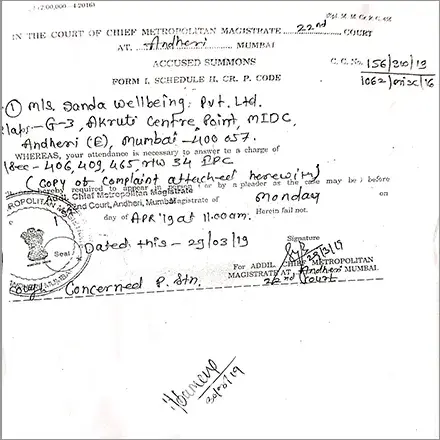 (2,00,000—4-2016)
IN THE COURT OF CHIEF METROPOLITAN MAGISTRATE 22nd COURT
AT. Andheri MUMBAI
ACCUSED SUMMONS
C. C. No. 156/sw/19
FORM I, SCHEDULE II, CR. P. CODE
1062/misc/16
① M/s. Sanda Wellbeing Pvt. Ltd.
G-3, Akruti Centre Point, MIDC,
Andheri (E), Mumbai-400 057.
WHEREAS, your attendance is necessary to answer to a charge of
Sec - 406, 409, 465 r/w 34 IPC
(Copy of Complaint attached herewith)
hereby required to appear in person (or by a pleader as the case may be) before
Addl. Chief Metropolitan Magistrate
22nd Court, Andheri, Mumbai Magistrate of Monday on
day of APR'19 at 11.00am. Herein fail not.
Dated this - 29/03/19
Signature
Seal
29/3/19
FOR ADDL. CHIEF METROPOLITAN
MAGISTRATE AT Andheri MUMBAI
22nd Court
Concerned P. Stn.